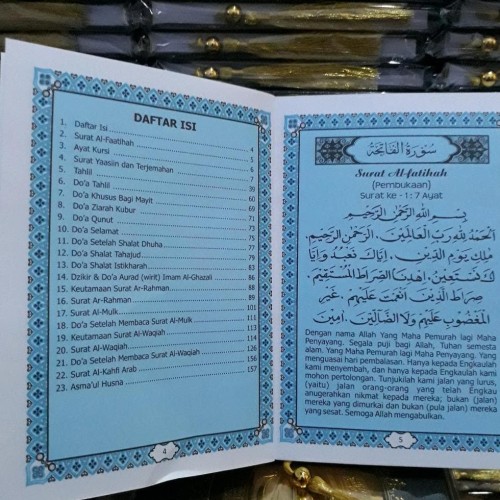 DAFTAR ISI
1. Daftar Isi
2. Surat Al-Faatihah
3. Ayat Kursi
4. Surat Yaasiin dan Terjemahan
5. Tahlil
6. Do'a Tahlil
7. Do'a Khusus Bagi Mayit
8. Do'a Ziarah Kubur
9. Do'a Qunut
10. Do'a Selamat
11. Do'a Setelah Shalat Dhuha
12. Do'a Shalat Tahajud
13. Do'a Shalat Istikharah
14. Dzikir & Do'a Aurad (wirit) Imam Al-Ghazali
15. Keutamaan Surat Ar-Rahman
16. Surat Ar-Rahman
17. Surat Al-Mulk
18. Do'a Setelah Membaca Surat Al-Mulk
19. Keutamaan Surat Al-Waqiah
20. Surat Al-Waqiah
21. Do'a Setelah Membaca Surat Al-Waqiah
22. Surat Al-Kahfi Arab
23. Asma'ul Husna
4
سورة الفاتحة
Surat Al-fatihah
(Pembukaan)
Surat ke - 1 : 7 Ayat
بسم الله الرحمن الرحيم
الحمد لله رب العالمين. الرحمن الرحيم.
ملك يوم الدين. اياك نعبد وايا
ك نستعين. اهدنا الصراط المستقيم.
صراط الذين انعمت عليهم. غير
المغضوب عليهم ولا الضالين. امين
Dengan nama Allah Yang Maha Pemurah lagi Maha
Penyayang. Segala puji bagi Allah, Tuhan semesta
alam. Yang Maha Pemurah lagi Maha Penyayang. Yang
menguasai hari pembalasan. Hanya kepada Engkaulah
kami menyembah, dan hanya kepada Engkaulah kami
mohon pertolongan. Tunjukilah kami jalan yang lurus,
(yaitu) jalan orang-orang yang telah Engkau
anugerahkan nikmat kepada mereka; bukan (jalan)
mereka yang dimurkai dan bukan (pula jalan) mereka
yang sesat. Semoga Allah mengabulkan.
5